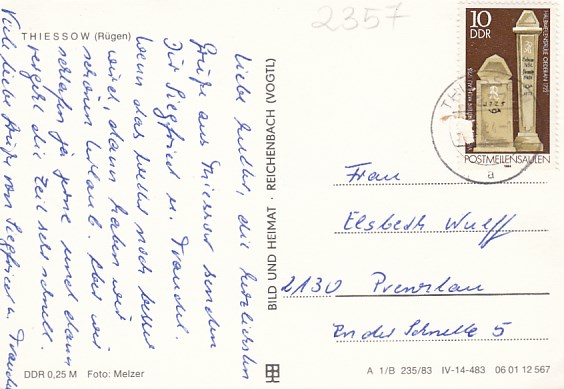 2357
THIESSOW (Rügen)
Liebe Mutter, die herzlichsten
Grüße aus Thiessow senden
Dir Siegfried u. Traudel.
Wenn das Wetter noch besser
wird, dann haben wir
schönen Urlaub. Aber wir
schlafen ja gerne und dann
vergeht die Zeit sehr schnell.
Viele liebe Grüße von Siegfried u. Traudel
BILD UND HEIMAT · REICHENBACH (VOGTL)
10
DDR
POSTMEILENSÄULEN
Frau
Elsbeth Wulff
2130 Prenzlau
An der Schnelle 5
DDR 0,25 M Foto: Melzer
A 1/B 235/83 IV-14-483 06 01 12 567